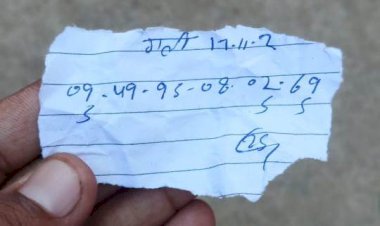 गली 17.11.2
09-49-95-08.02-69
5 5 5
25